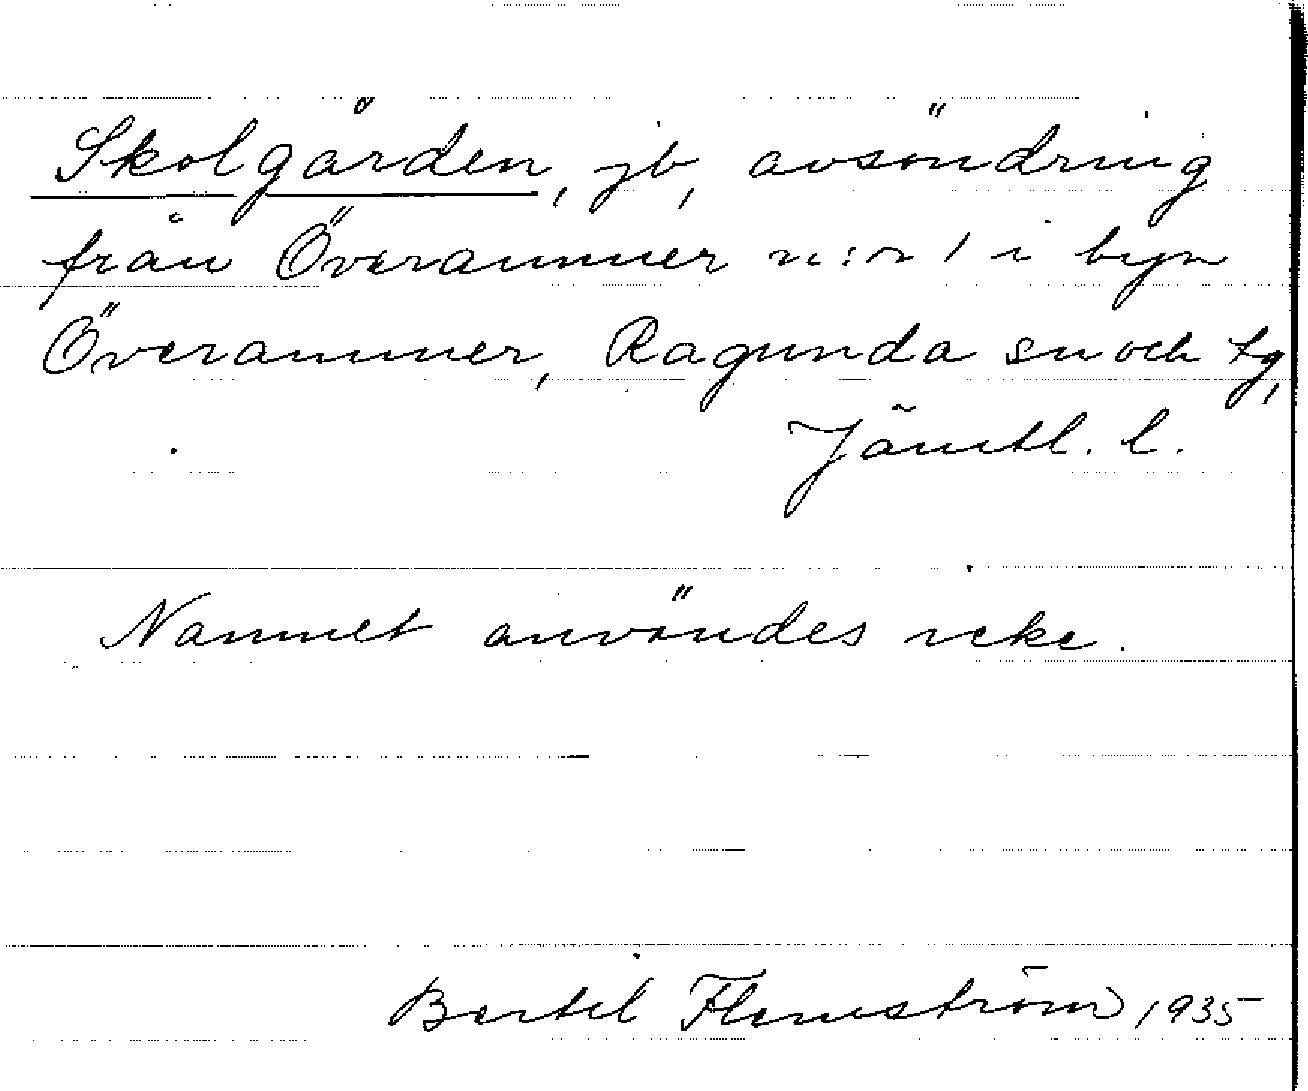 Skolgården, jb, avsöndring
från Överammer n:o 1 i byn
Överammer, Ragunda sn och tg,
Jämtl. l.
Namnet användes icke.
Bertil Flemström 1935